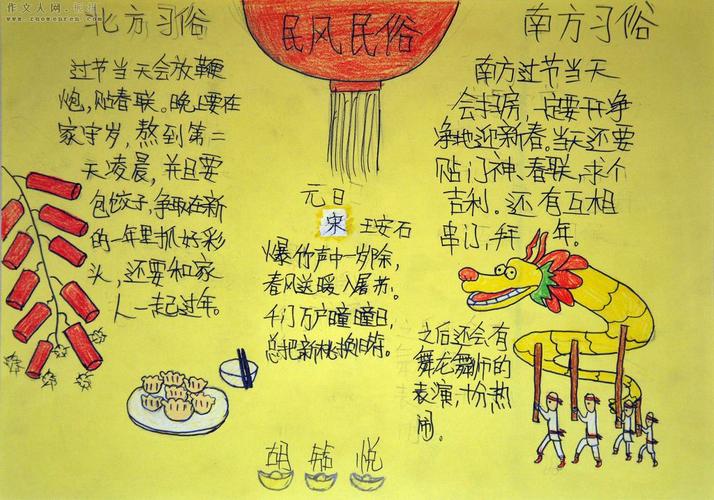 作文人网
www.zuowenren.com
北方习俗
过节当天会放鞭
炮,贴春联。晚上要在
家守岁,熬到第二
天凌晨,并且要
包饺子,争取在新
的一年里抓好彩
头,还要和家
人一起过年。
民风民俗
元日
宋 王安石
爆竹声中一岁除,
春风送暖入屠苏。
千门万户曈曈日,
总把新桃换旧符。
南方习俗
南方过节当天
会扫房,一定要干净
净地迎新春。当天还要
贴门神、春联,求个
吉利。还有互相
串门,拜年。
之后还会有
舞龙舞狮的
表演,十分热
闹。
胡 悦